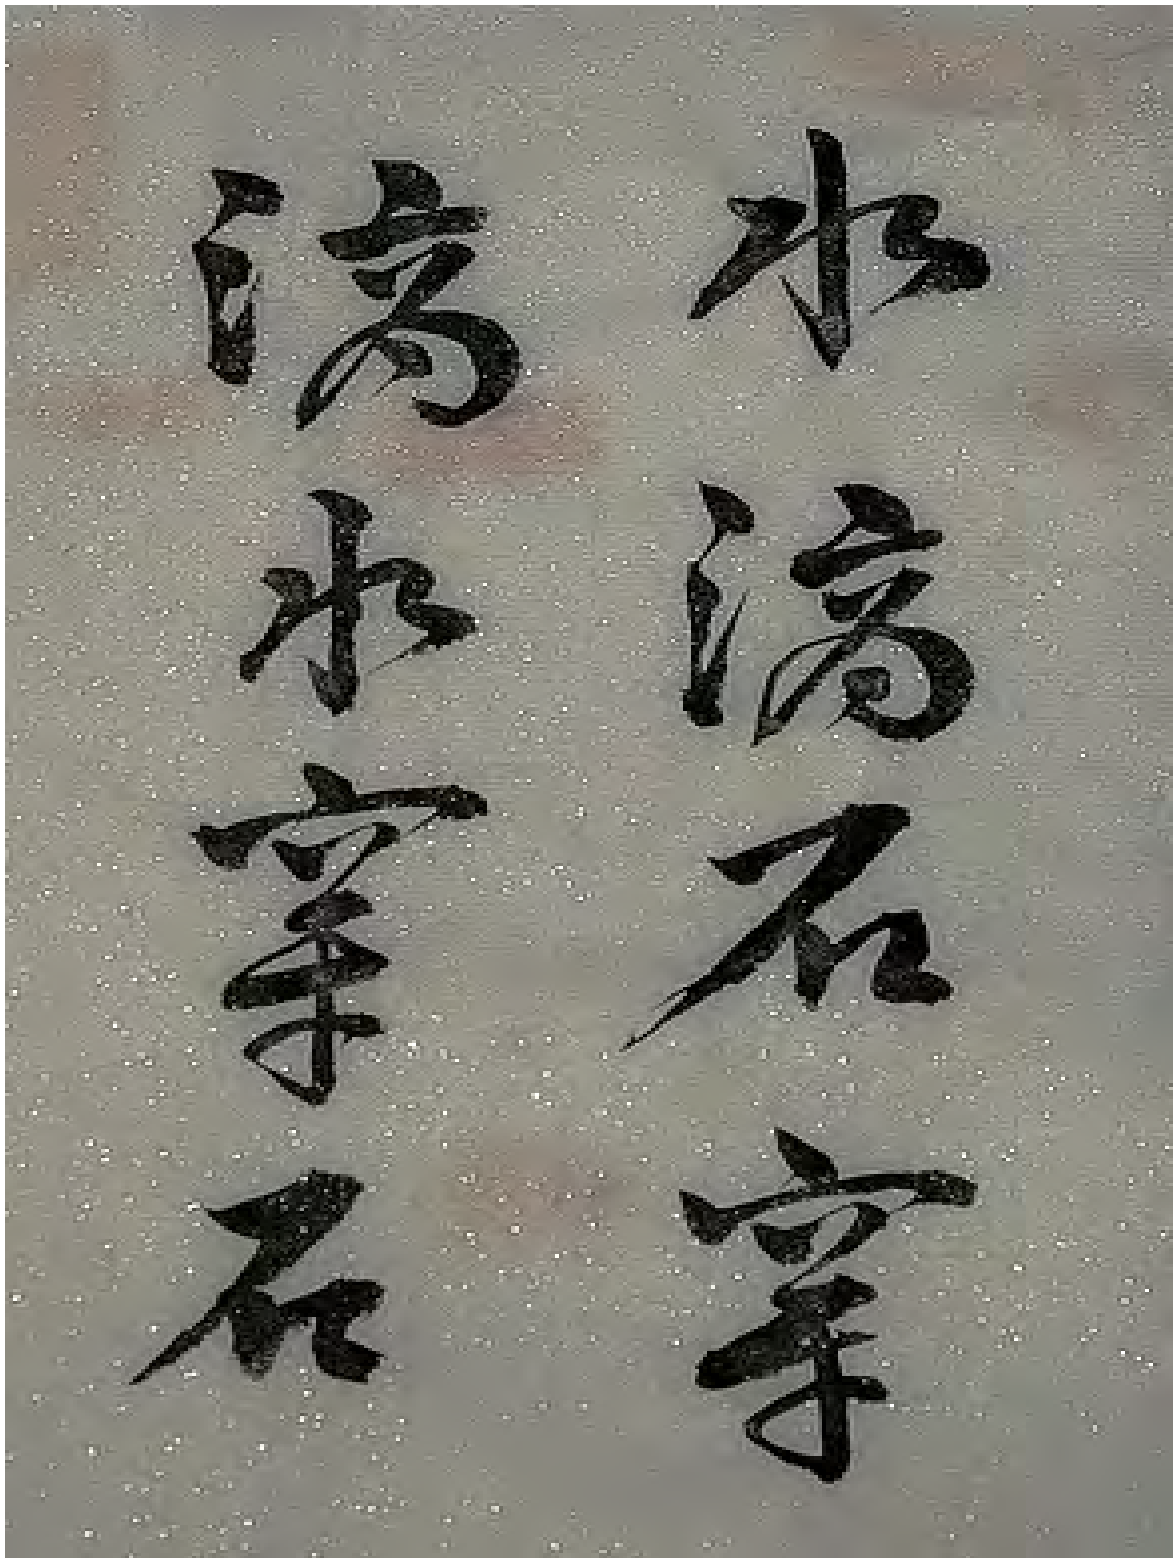 水滴石穿
滴水穿石